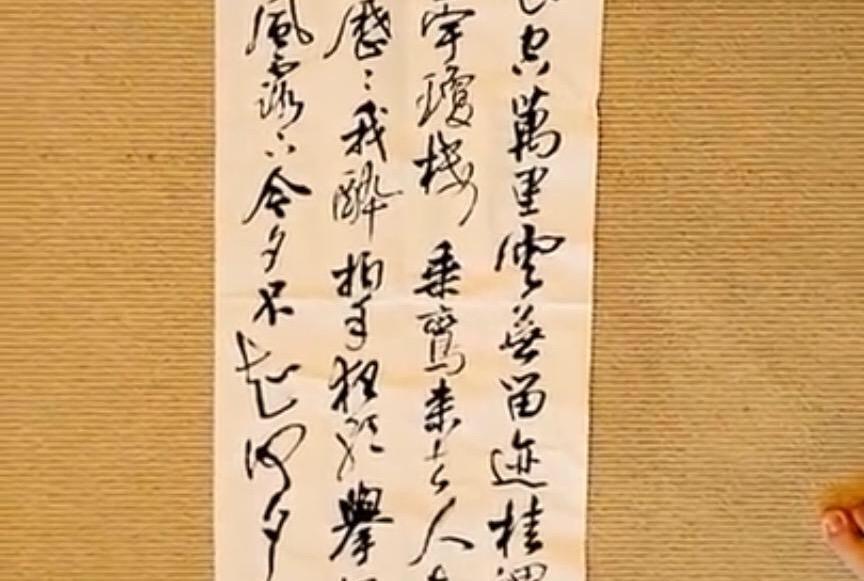 空萬里雲無留迹桂
宇瓊樓乘鸞来去人
歷〻我醉拍手狂歌舉
風露下今夕不知何夕